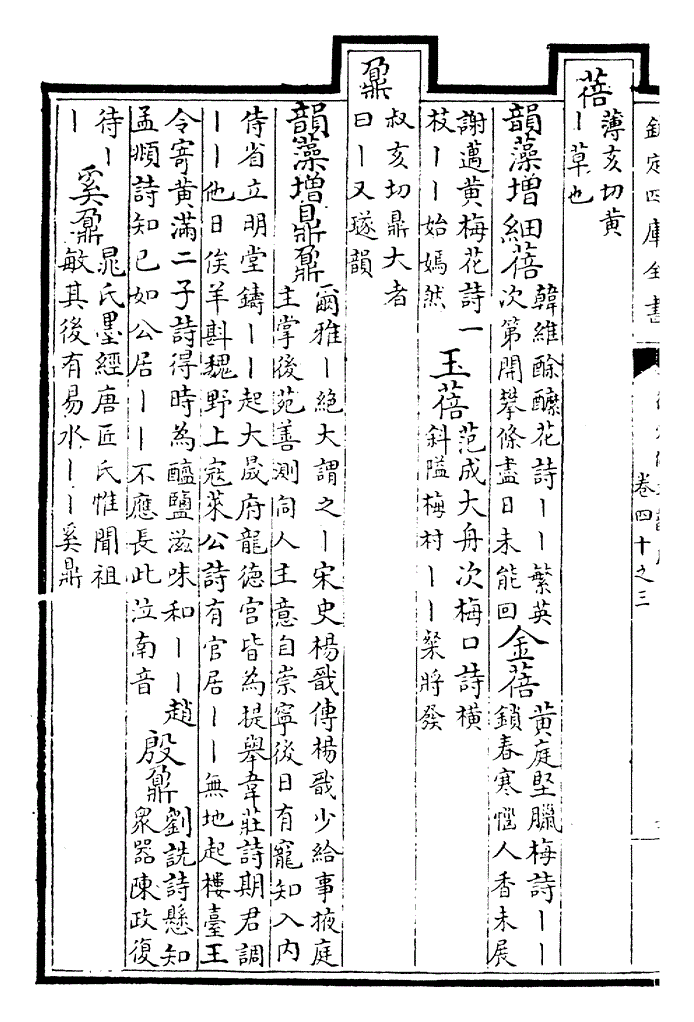 欽定四庫全書
卷四十之三
蓓
薄亥切黃
丨草也
韻藻增細蓓
韓維酴醿花詩丨丨繁英
次第開攀條盡日未能回
金蓓
黃庭堅臘梅詩丨丨
鎖春寒惱人香未展
謝邁黃梅花詩一
枝丨丨始嫣然
玉蓓
范成大舟次梅口詩橫
斜隘梅村丨丨粲將發
鼐
叔亥切鼎大者
曰丨又璲韻
韻藻增鼎鼐
爾雅丨絶大謂之丨宋史楊戩傳楊戩少給事掖庭
主掌後苑善測伺人主意自崇寧後日有寵知入内
侍省立明堂鑄丨丨起大晟府龍德宮皆為提舉韋莊詩期君調
丨丨他日俟羊斟魏野上寇萊公詩有官居丨丨無地起樓臺王
令寄黃滿二子詩得時為醯鹽滋味和丨丨趙
孟頫詩知已如公居丨丨不應長此泣南音
殷鼐
劉詵詩懸知
衆器陳政復
待丨
丨
奚鼐
晁氏墨經唐匠氏惟聞祖
敏其後有易水丨丨奚鼎